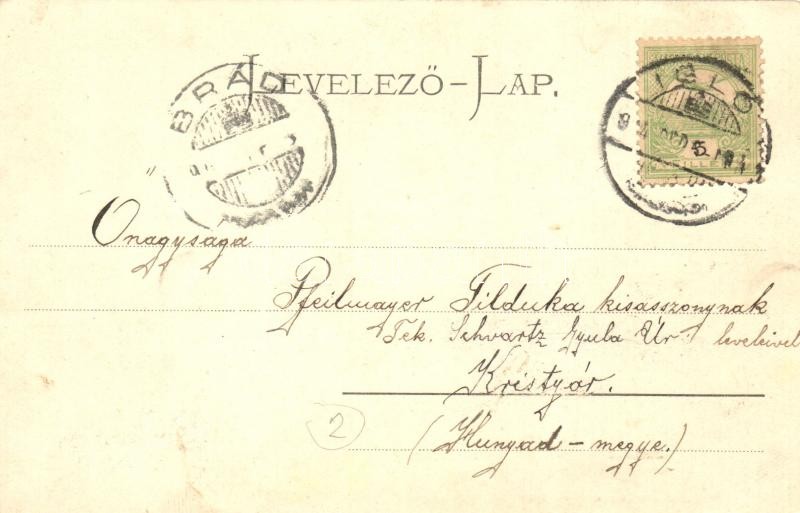 LEVELEZŐ-LAP.
BRÁD
5
Őnagysága
Pfeilmayer Tilduka kisasszonynak
Tek. Schvartz Gyula Úr leveleivel
Kristyór.
(Hunyad-megye.)
2